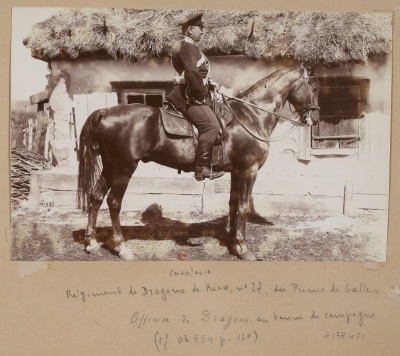 Cavalerie
Régiment de Dragons de Kiew, no 27, du Prince de Galles
Officier de Dragons en tenue de campagne
(cf 06554 p. 120)
G138451